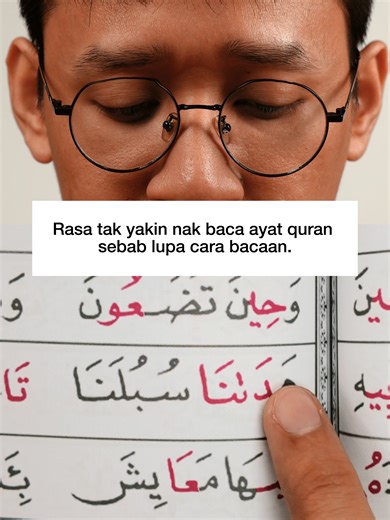 Rasa tak yakin nak baca ayat quran
sebab lupa cara bacaan.
وَحِينَ تَضَعُونَ
هَدَىٰنَا سُبُلَنَا
مَعَايِشَ